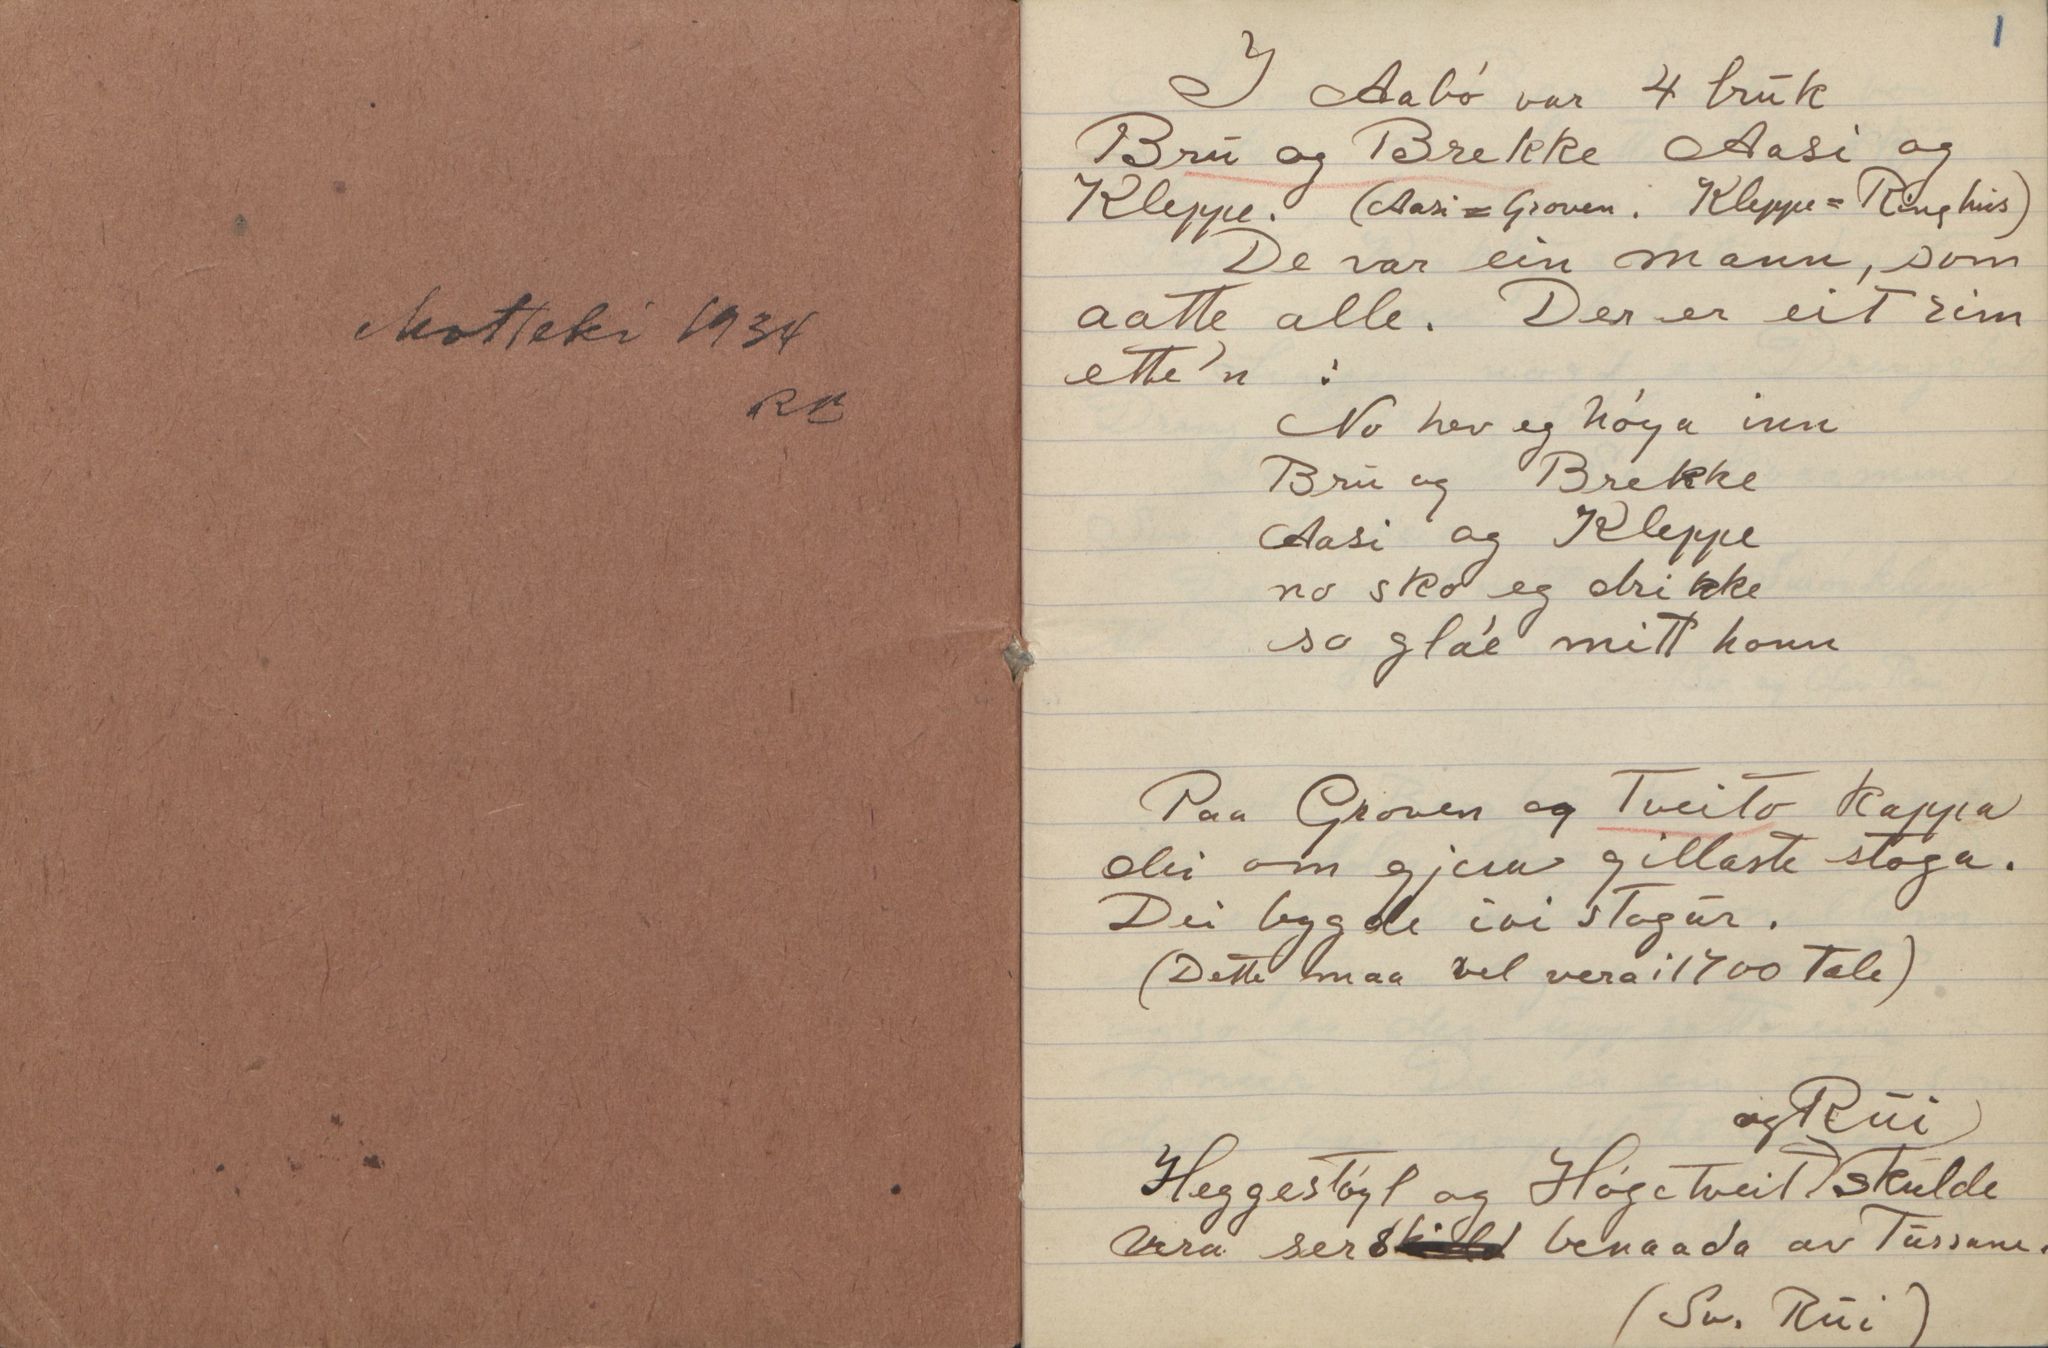 Motteki 1934
RB
1
I Aabó var 4 brūk
Brū og Brekke Aasi og
Kleppe. (Aasi = Groven. Kleppe = Ringhūs)
De var ein mann, som
aatte alle. Der er eit rim
ette'n :
No hev eg hóya inn
Brū og Brekke
Aasi og Kleppe
no sko eg drikke
so glae mitt honn
Paa Groven og Tveito kappa
dei om gjera gillaste stoga.
Dei bygde ivi stogūr.
(Dette maa vel vera i 1700 tale)
og Rūi
Heggestóyl og Hógetveit skūlde
vera ser benaada av Tūssane.
(Sv. Rūi)